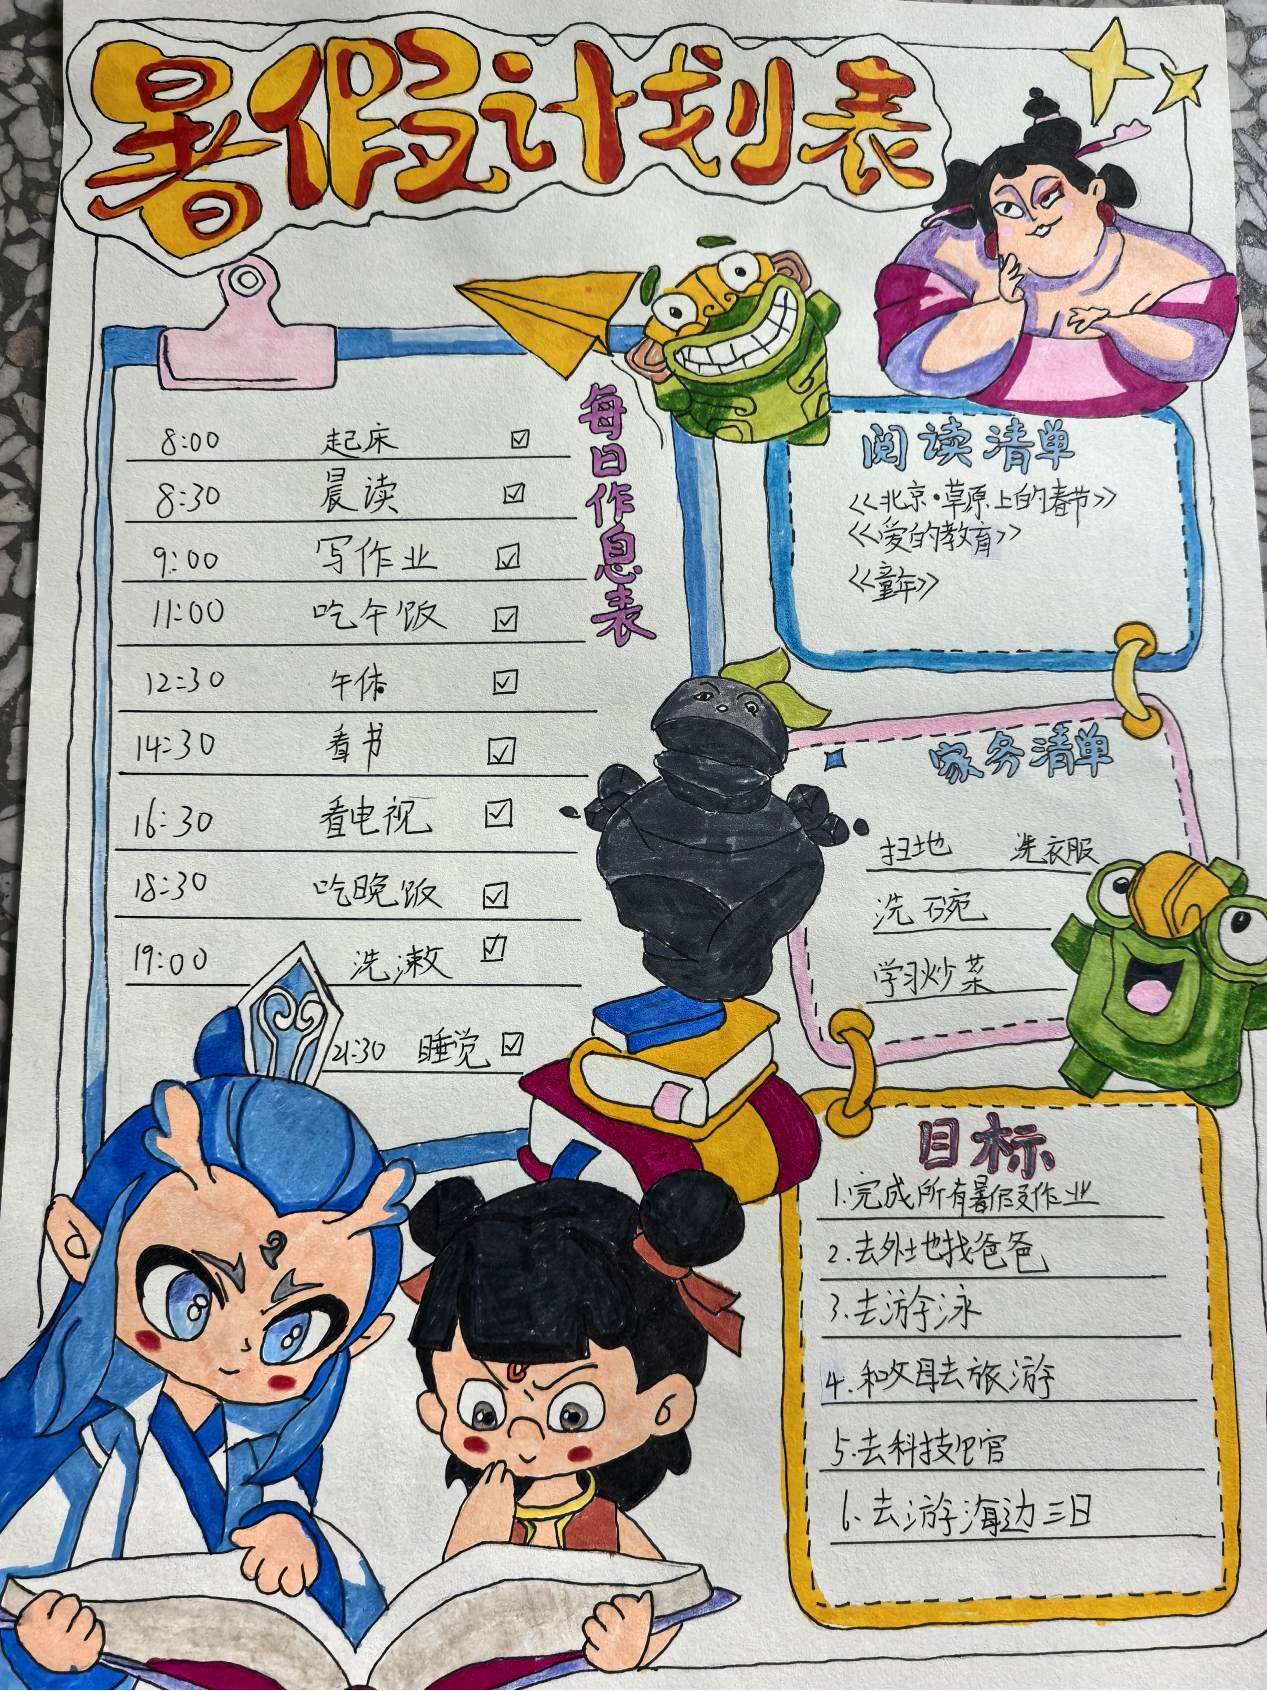 暑假计划表
每日作息表
8:00 起床 ☑
8:30 晨读 ☑
9:00 写作业 ☑
11:00 吃午饭 ☑
12:30 午休 ☑
14:30 看书 ☑
16:30 看电视 ☑
18:30 吃晚饭 ☑
19:00 洗漱 ☑
21:30 睡觉 ☑
阅读清单
<<北京·草原上的春节>>
<<爱的教育>>
<<童年>>
家务清单
扫地 洗衣服
洗碗
学习炒菜
目标
1.完成所有暑假作业
2.去外地找爸爸
3.去游泳
4.和父母去旅游
5.去科技馆
6.去游海边三日